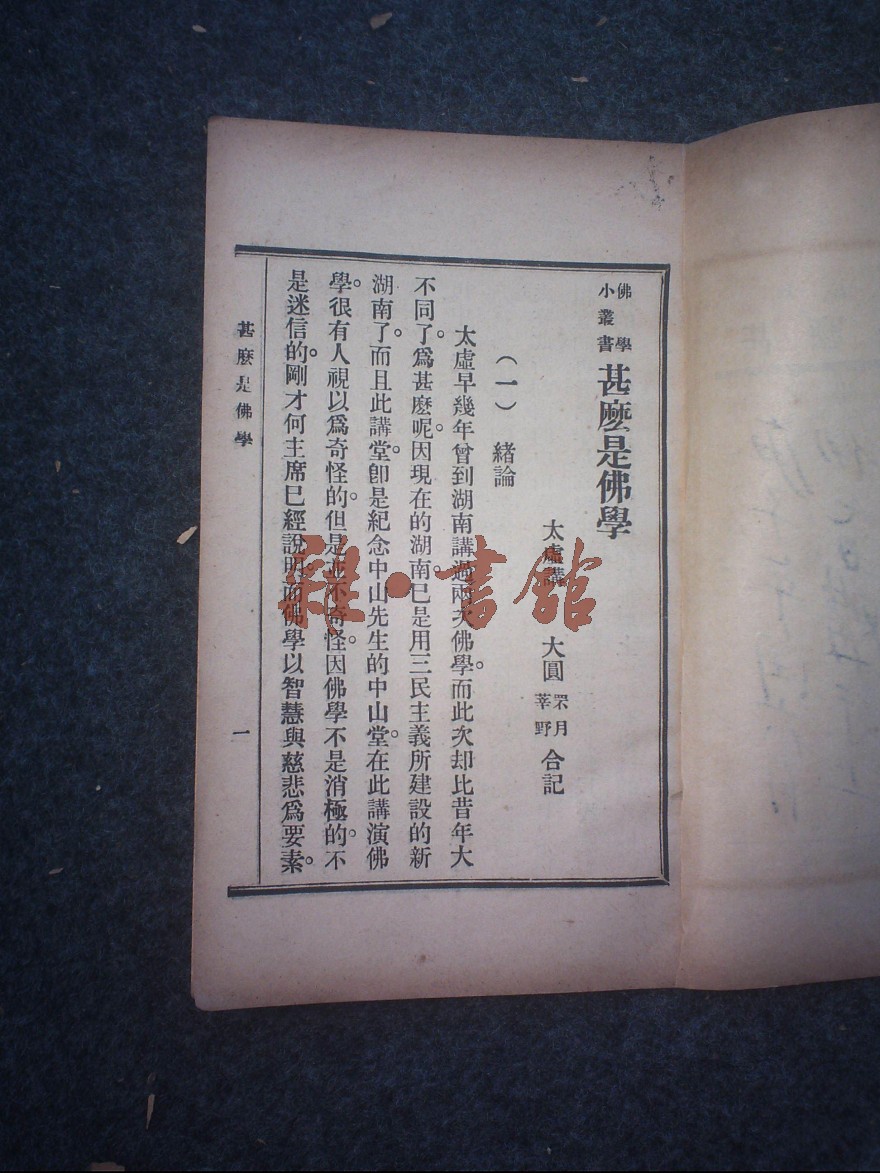 佛學小叢書
甚麽是佛學
太虛講 大圓 罘月 莘野 合記
（一） 緒論
太虛早幾年曾到湖南講過兩天佛學。而此次却比昔年大
不同了。爲甚麽呢。因現在的湖南。已是用三民主義所建設的新
湖南了。而且此講堂。卽是紀念中山先生的中山堂。在此講演佛
學。很有人視以爲奇怪的。但是並不奇怪。因佛學不是消極的。不
是迷信的。剛才何主席已經說明。而佛學以智慧與慈悲爲要素。
甚麽是佛學
一
雜·書館